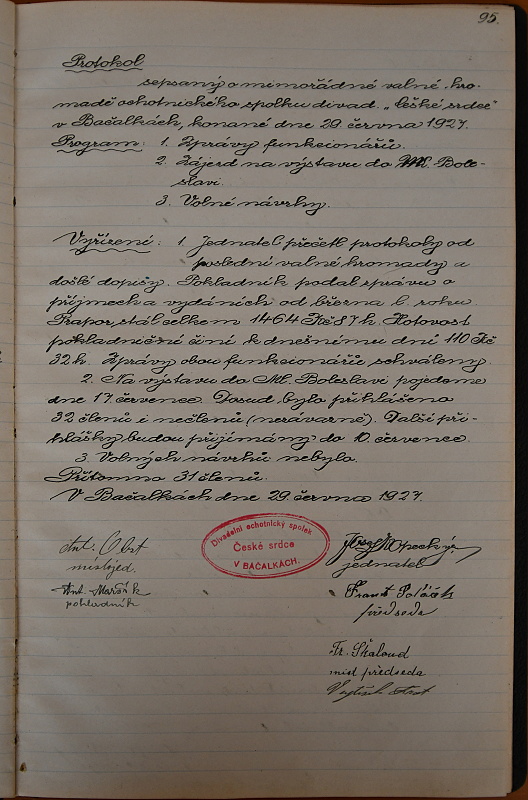 95.
Protokol
sepsaný o mimořádné valné hro-
madě ochotnického spolku divad. „České srdce"
v Bačalkách, konané dne 29. června 1927.
Program: 1. Zprávy funkcionářů.
2. Zájezd na výstavu do Ml. Bole-
slavi.
3. Volné návrhy.
Vyřízení: 1. Jednatel přečetl protokoly od
poslední valné hromady a
došlé dopisy. Pokladník podal správu o
příjmech a vydáních od března t. roku.
Prapor stál celkem 1464 Kč 87 h. Hotovost
pokladniční činí k dnešnímu dni 110 Kč
32 h. Zprávy obou funkcionářů schváleny.
2. Na výstavu do Ml. Boleslavi pojedeme
dne 17. července. Dosud bylo přihlášeno
32 členů i nečlenů (nezávazně). Další při-
hlášky budou přijímány do 10. července.
3. Volných návrhů nebylo.
Přítomno 31 členů.
V Bačalkách dne 29. června 1927.
Divadelní ochotnický spolek
České srdce
V BAČALKÁCH.
Ant.
místojed.
Ant. Maršík
pokladník
Josef
jednatel
Frant. Polák
předseda
Fr. Škaloud
míst předseda
Vojtěch